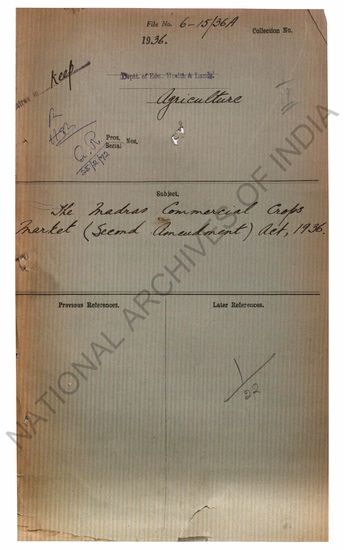 File No. 6-15/36A
Collection No.
1936.
Keep
Deptt. of Edn. Health & Lands.
Agriculture
Pros. Nos.
Serial
Subject.
The Madras Commercial Crops
Market (Second Amendment) Act, 1936.
Previous References.
Later References.
1/22
NATIONAL ARCHIVES OF INDIA